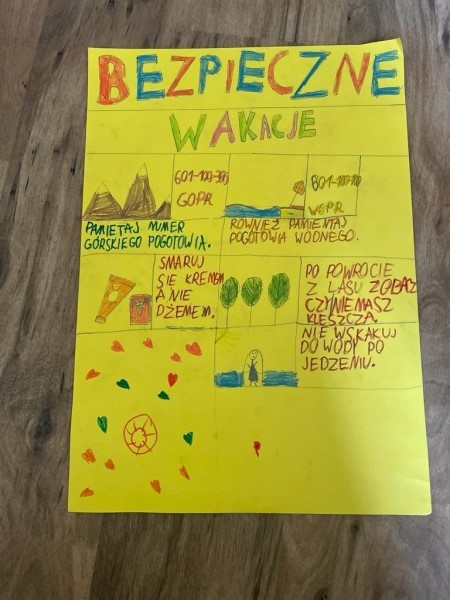 BEZPIECZNE
WAKACJE
601-100-300
GOPR
601-100-100
WOPR
PAMIĘTAJ NUMER
GÓRSKIEGO POGOTOWIA.
RÓWNIEŻ PAMIENTAJ
POGOTOWIA WODNEGO.
SMARUJ
SIE KREMEM
A NIE
DŻEMEM.
PO POWROCIE
Z LASU ZOBACZ
CZY NIE MASZ
KLESZCZA.
NIE WSKAKUJ
DO WODY PO
JEDZENIU.